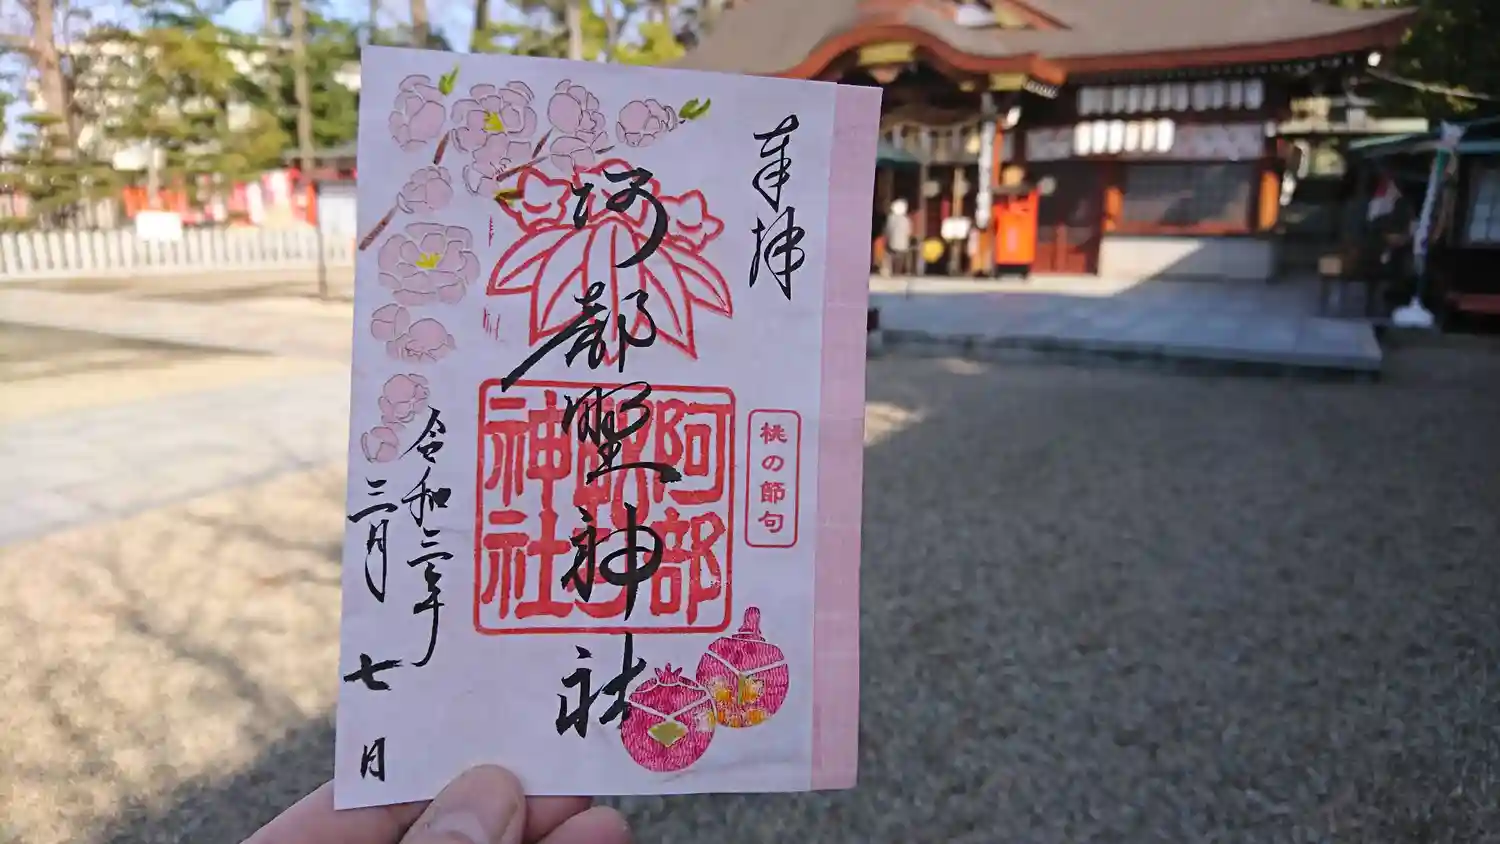 奉拝
桃の節句
阿部野神社
阿部野神社
令和三年
三月
七日